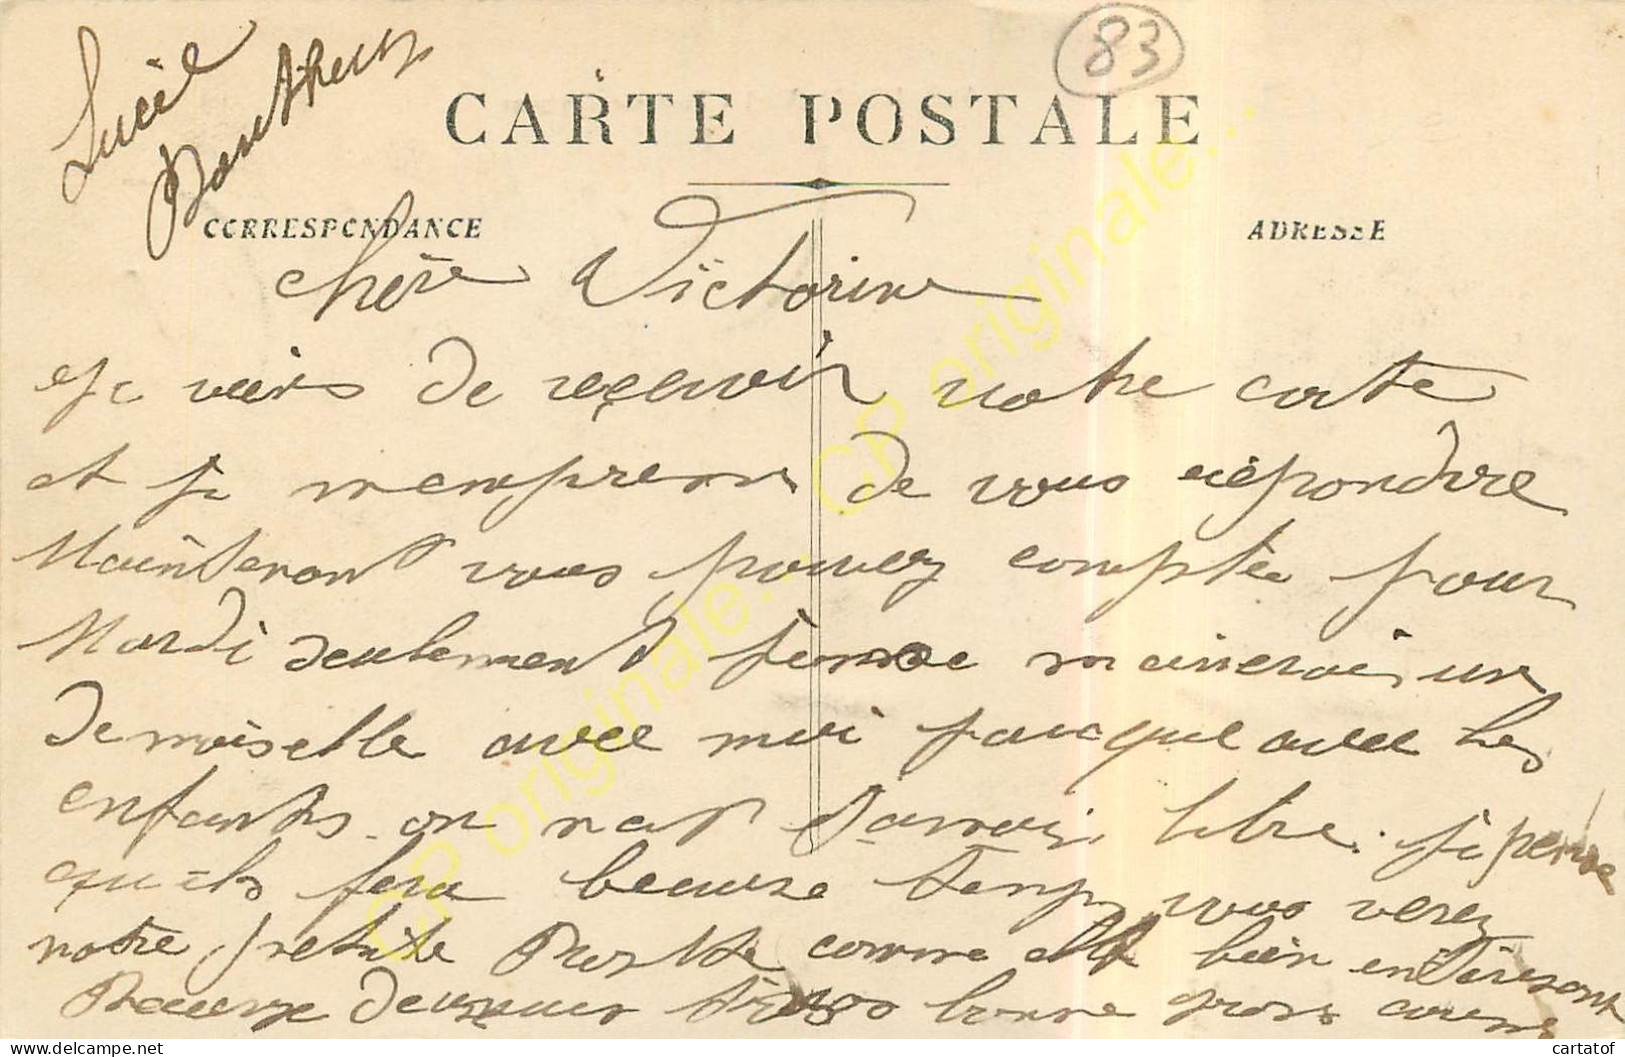 83
Lucie
CARTE POSTALE
CORRESPONDANCE
ADRESSE
chère Victorine
Je viens de reçevoir votre carte
et je mempresse de vous répondre
Maintenant vous pouvez comptée pour
Mardi seulement une
demoiselle avec moi parceque avec les
enfants on nest libre. je pense
quils fera beause temps vous verez
notre petite comme elle bien
bonne gros
CP originale...
CP originale...
cartatof